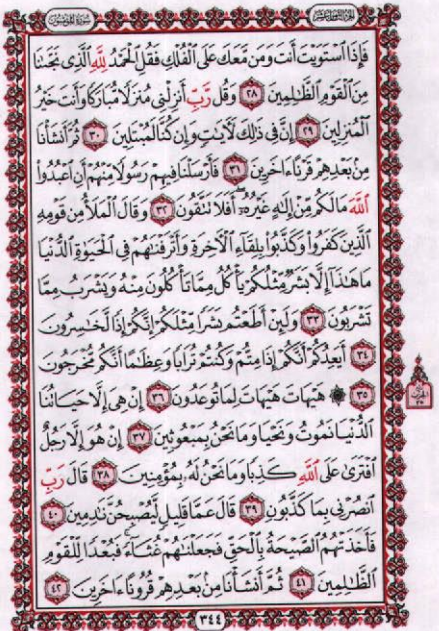 الجزء الثامن عشر سورة المؤمنون
فَإِذَا ٱسْتَوَيْتَ أَنتَ وَمَن مَّعَكَ عَلَى ٱلْفُلْكِ فَقُلِ ٱلْحَمْدُ لِلَّهِ ٱلَّذِى نَجَّىٰنَا
مِنَ ٱلْقَوْمِ ٱلظَّٰلِمِينَ ٢٨ وَقُل رَّبِّ أَنزِلْنِى مُنزَلًا مُّبَارَكًا وَأَنتَ خَيْرُ
ٱلْمُنزِلِينَ ٢٩ إِنَّ فِى ذَٰلِكَ لَـَٔايَٰتٍ وَإِن كُنَّا لَمُبْتَلِينَ ٣٠ ثُمَّ أَنشَأْنَا
مِنۢ بَعْدِهِمْ قَرْنًا ءَاخَرِينَ ٣١ فَأَرْسَلْنَا فِيهِمْ رَسُولًا مِّنْهُمْ أَنِ ٱعْبُدُوا۟
ٱللَّهَ مَا لَكُم مِّنْ إِلَٰهٍ غَيْرُهُۥٓ ۖ أَفَلَا تَتَّقُونَ ٣٢ وَقَالَ ٱلْمَلَأُ مِن قَوْمِهِ
ٱلَّذِينَ كَفَرُوا۟ وَكَذَّبُوا۟ بِلِقَآءِ ٱلْـَٔاخِرَةِ وَأَتْرَفْنَٰهُمْ فِى ٱلْحَيَوٰةِ ٱلدُّنْيَا
مَا هَٰذَآ إِلَّا بَشَرٌ مِّثْلُكُمْ يَأْكُلُ مِمَّا تَأْكُلُونَ مِنْهُ وَيَشْرَبُ مِمَّا
تَشْرَبُونَ ٣٣ وَلَئِنْ أَطَعْتُم بَشَرًا مِّثْلَكُمْ إِنَّكُمْ إِذًا لَّخَٰسِرُونَ
٣٤ أَيَعِدُكُمْ أَنَّكُمْ إِذَا مِتُّمْ وَكُنتُمْ تُرَابًا وَعِظَٰمًا أَنَّكُم مُّخْرَجُونَ
٣٥ ۞ هَيْهَاتَ هَيْهَاتَ لِمَا تُوعَدُونَ ٣٦ إِنْ هِىَ إِلَّا حَيَاتُنَا
ٱلدُّنْيَا نَمُوتُ وَنَحْيَا وَمَا نَحْنُ بِمَبْعُوثِينَ ٣٧ إِنْ هُوَ إِلَّا رَجُلٌ
ٱفْتَرَىٰ عَلَى ٱللَّهِ كَذِبًا وَمَا نَحْنُ لَهُۥ بِمُؤْمِنِينَ ٣٨ قَالَ رَبِّ
ٱنصُرْنِى بِمَا كَذَّبُونِ ٣٩ قَالَ عَمَّا قَلِيلٍ لَّيُصْبِحُنَّ نَٰدِمِينَ ٤٠
فَأَخَذَتْهُمُ ٱلصَّيْحَةُ بِٱلْحَقِّ فَجَعَلْنَٰهُمْ غُثَآءً ۚ فَبُعْدًا لِّلْقَوْمِ
ٱلظَّٰلِمِينَ ٤١ ثُمَّ أَنشَأْنَا مِنۢ بَعْدِهِمْ قُرُونًا ءَاخَرِينَ ٤٢
٣٤٤